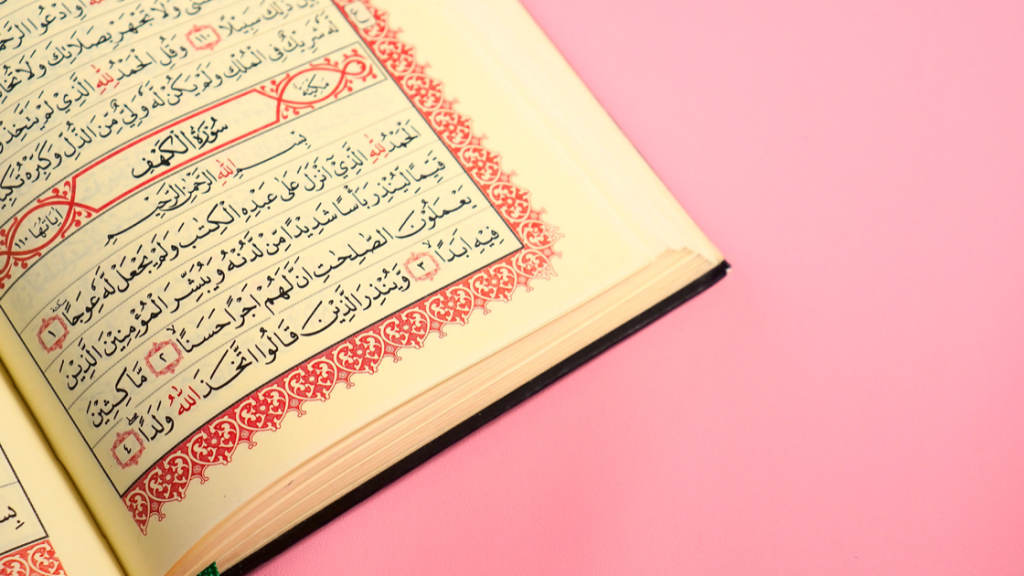 اَوِ ادْعُوا
وَلَا تَجْهَرْ بِصَلَاتِكَ وَلَا
ذٰلِكَ سَبِيْلًا ١١٠ وَقُلِ الْحَمْدُ لِلّٰهِ الَّذِيْ لَمْ
لَهٗ شَرِيْكٌ فِى الْمُلْكِ وَلَمْ يَكُنْ لَّهٗ وَلِيٌّ مِّنَ الذُّلِّ وَكَبِّرْهُ
مَكِّيَّةٌ سُوْرَةُ الْكَهْفِ اٰيَاتُهَا ١١٠
بِسْمِ اللّٰهِ الرَّحْمٰنِ الرَّحِيْمِ
اَلْحَمْدُ لِلّٰهِ الَّذِيْٓ اَنْزَلَ عَلٰى عَبْدِهِ الْكِتٰبَ وَلَمْ يَجْعَلْ لَّهٗ عِوَجًا ١
قَيِّمًا لِّيُنْذِرَ بَأْسًا شَدِيْدًا مِّنْ لَّدُنْهُ وَيُبَشِّرَ الْمُؤْمِنِيْنَ الَّذِيْنَ
يَعْمَلُوْنَ الصّٰلِحٰتِ اَنَّ لَهُمْ اَجْرًا حَسَنًا ٢ مَّاكِثِيْنَ
فِيْهِ اَبَدًا ٣ وَّيُنْذِرَ الَّذِيْنَ قَالُوا اتَّخَذَ اللّٰهُ وَلَدًا ٤